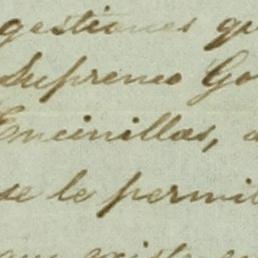 gestiones
Supremo Go
Encinillas,
se le permit